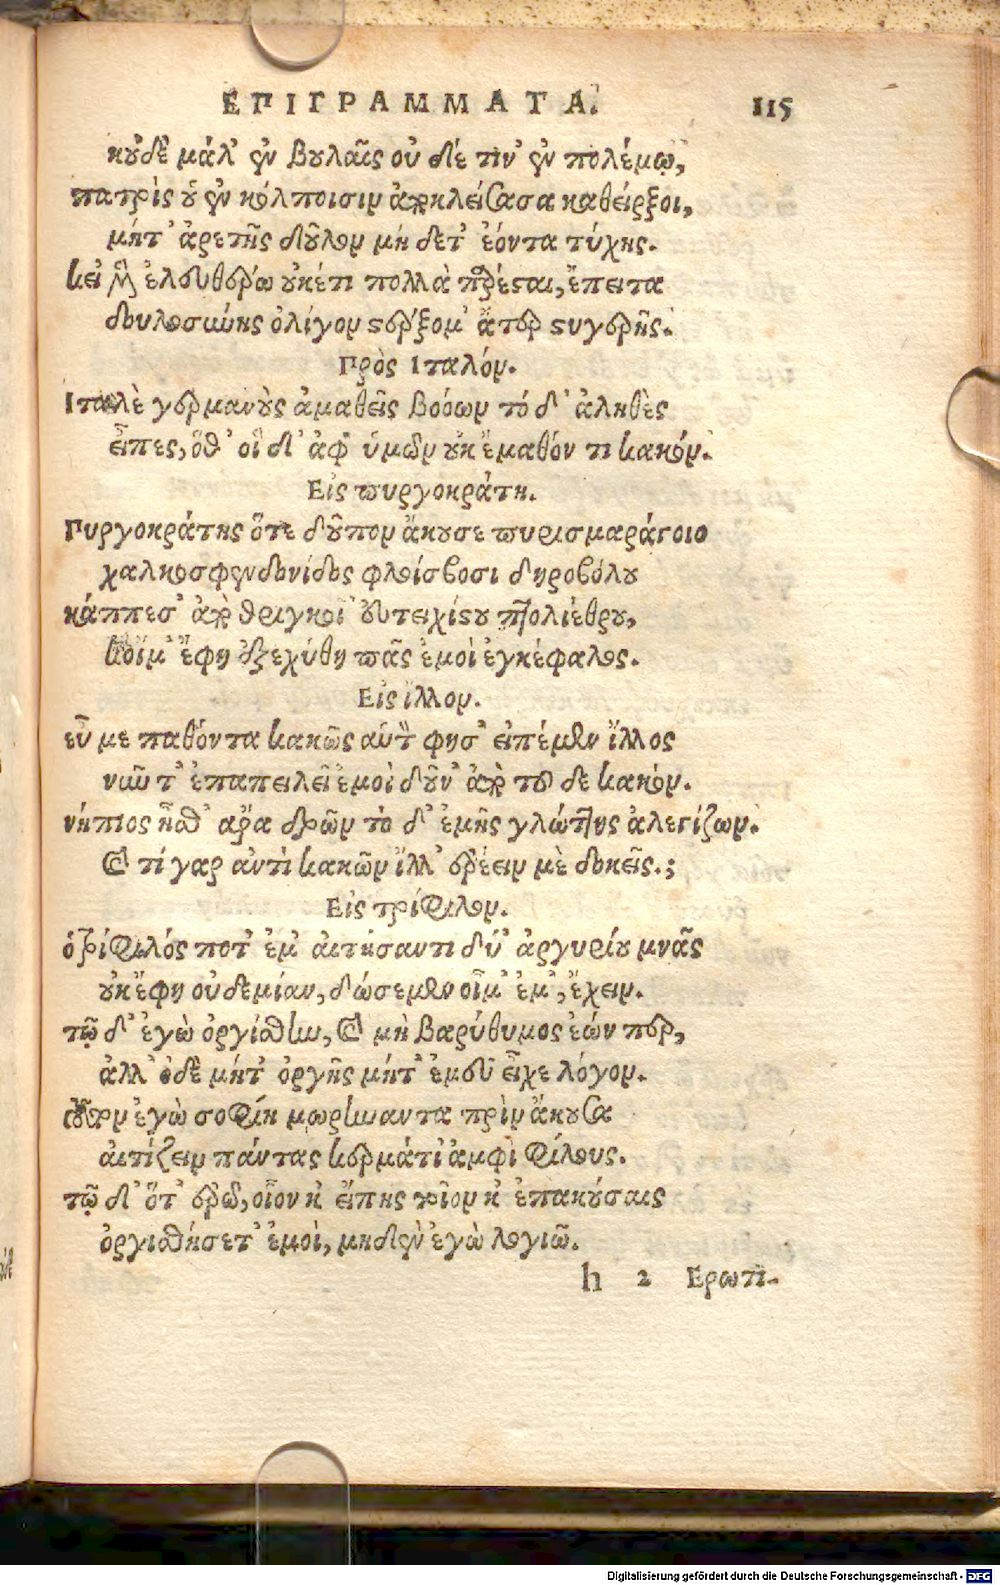 ΕΠΙΓΡΑΜΜΑΤΑ. 115
κοὐδὲ μάλ' ἐν βουλαῖς οὐ δέ τιν' ἐν πολέμῳ,
πατρὶς οὗ ἐν κόλποισιν ἀποκλείσασα καθείρξοι,
μήτ' ἀρετῆς δοῦλον μὴ δετ' ἐόντα τύχης.
κεἰ μὴ ἐλευθέρω οὐκέτι πολλὰ πρέσαι, ἔπειτα
δουλοσύνης ὀλίγον στέρξομ' ἄτερ στυγερῆς.
Πρὸς Ιταλόν.
Ιταλὲ γερμανοὺς ἀμαθεῖς βοόων τό δ' ἀληθὲς
εἶπες, ὅθ' οἵ δι' ἀφ' ὑμῶν οὐκ ἔμαθόν τι κακόν.
Εἰς πυργοκράτη.
Πυργοκράτης ὅτε δοῦπον ἄκουσε πυρισμαράγοιο
χαλκοσφενδονίδος φλοίσβοσι δηροβόλου
κάππεσ' ἀπὸ θριγκοῖ' εὐτειχίστου πτολιέθρου,
κοἴμ' ἔφη ἐξεχύθη πᾶς ἐμοὶ ἐγκέφαλος.
Εἰς ἴλλον.
εὖ με παθόντα κακῶς αὐτὸν φησ' εἰπέμεν ἴλλος
νῦν τ' ἐπαπειλεῖ ἐμοὶ δοῦν' ἀπὸ τοῦ δε κακόν.
νήπιος ἦσθ' ἄρα δρῶν τὸ δ' ἐμῆς γλώττης ἀλεγίζων.
καὶ τί γαρ ἀντὶ κακῶν ἴλλ' ἐρέειν μὲ δοκεῖς.;
Εἰς τρίφιλον.
ὁ τρίφιλός ποτ' ἐμ' αἰτήσαντι δύ' ἀργυρίου μνᾶς
οὐκ ἔφη οὐδεμίαν, δώσεμεν οἷμ' ἐμ', ἔχειν.
τῷ δ' ἐγὼ ὀργίσθην, καὶ μὴ βαρύθυμος ἐών περ,
ἀλλ' ὁδὲ μήτ' ὀργῆς μήτ' ἐμεῦ εἶχε λόγον.
ἐγὼ σοφίη μωρήναντα πρὶν ἄκουσα
αἰτίζειν πάντας κερμάτι' ἀμφὶ φίλους.
τῷ δ' ὅτ' ἐρῶ, οἷον κ' εἴπῃς τοῖον κ' ἐπακούσαις
ὀργισθήσετ' ἐμοί, μηδὲν ἐγὼ λογιῶ.
h 2 Ερωτι-
Digitalisierung gefördert durch die Deutsche Forschungsgemeinschaft - DFG